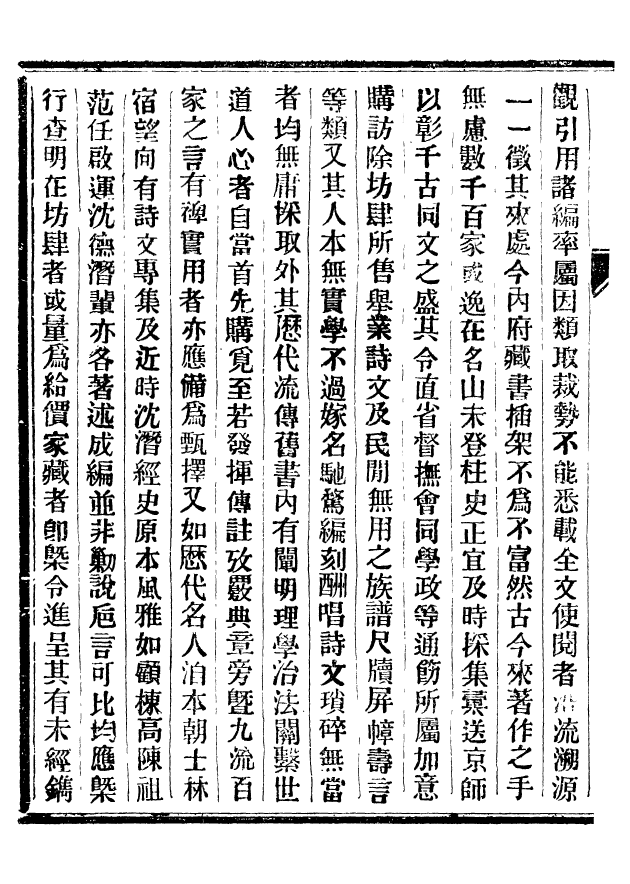 觀引用諸編率屬因類取裁勢不能悉載全文使閱者沿流溯源
一一徵其來處今內府藏書揷架不爲不富然古今來著作之手
無慮數千百家或逸在名山未登柱史正宜及時採集彚送京師
以彰千古同文之盛其令直省督撫會同學政等通飭所屬加意
購訪除坊肆所售舉業詩文及民閒無用之族譜尺牘屏幛壽言
等類又其人本無實學不過嫁名馳騖編刻酬唱詩文瑣碎無當
者均無庸採取外其歷代流傳舊書內有闡明理學治法關繫世
道人心者自當首先購覓至若發揮傳註攷覈典章旁曁九流百
家之言有裨實用者亦應備爲甄擇又如歷代名人洎本朝士林
宿望向有詩文專集及近時沈潛經史原本風雅如顧棟高陳祖
范任啟運沈德潛輩亦各著述成編並非勦說巵言可比均應槩
行查明在坊肆者或量爲給價家藏者卽槩令進呈其有未經鐫